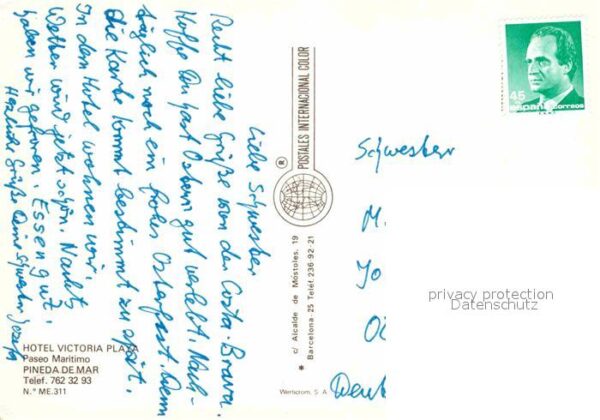 Liebe Schwester
Recht liebe Grüße von der Costa-Brava.
Hoffe Du hast Ostern gut verlebt. Nach-
träglich noch ein frohes Osterfest. Denn
die Karte kommt bestimmt zu spät.
In dem Hotel wohnen wir.
Wetter wird jetzt schön. Nachts
haben wir gefroren. Essen gut.
Herzliche Grüße Deine Schwester
HOTEL VICTORIA PLAYA
Paseo Marítimo
PINEDA DE MAR
Telef. 762 32 93
N.º ME.311
® POSTALES INTERNACIONAL COLOR
c/ Alcalde de Móstoles, 19
Barcelona-25 Teléf. 236 92 21
Wertscrom, S. A.
45
españa correos
Schwester
M.
Jo
privacy protection
Datenschutz